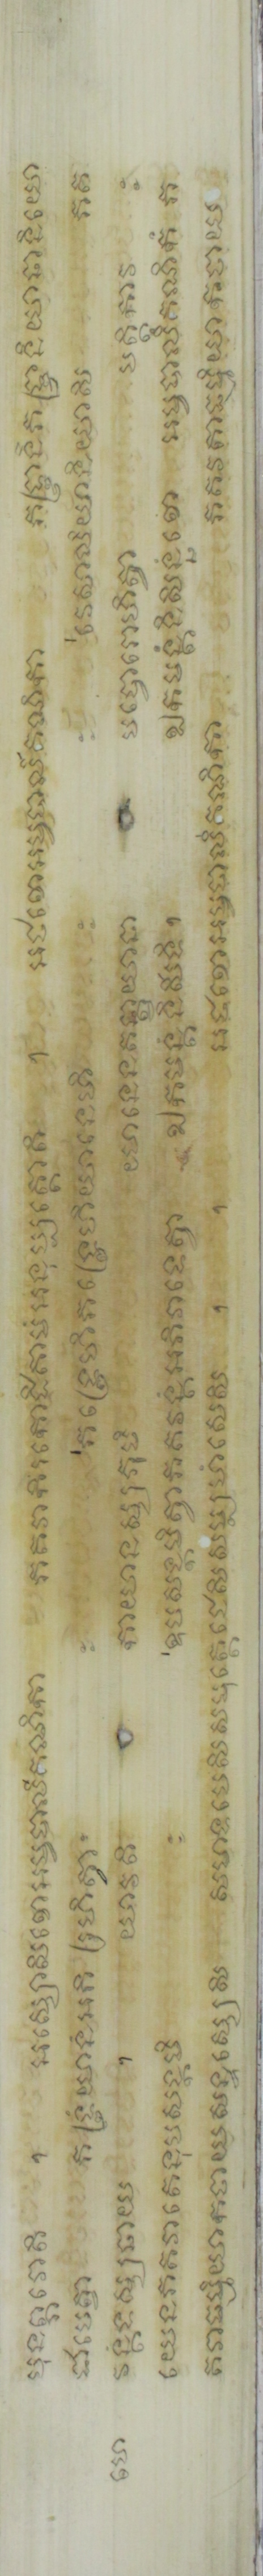 បុនព្ភវោតិ ។ អស្សោសិខោអម្ពបាលីគណិកា ភគវាកិរកោដិគាមំអនុប្បត្តោតិ ។ អថខោអម្ពបាលីគណិកា ភទ្រានិភទ្រានិយានានិយោ
ជាបេត្វា ភទ្រំយានំអភិរុហិត្វា ៈ ភទ្រេហិភទ្រេហិយានេហិ ៈ ៈ វេសាលិយានិយាសិ ភគ
ហេ វន្តំទស្សនាយ ។ យាវតិ កាយានស្សភូមិ យានេនគន្ត្វាយានា បច្ចោរោហិត្វា បត្តិកាវ ៈ
យេនភគវាតេនុបសង្កមិ ៈ ឧបសង្កមិត្វាភគវន្តំអភិវាទេត្វា ឯកមន្តំនិសីទិ។ ឯកមន្តំនិសិន្នំខោ អម្ពបាលឹគណិកំ ភ
គវាធម្មិយាកថាយសន្ទស្សេសិ សមាទបេសិសមុត្តេជេសិសម្បហំសេសិ ។ ។ អថខោអម្ពបាលីគណិកា ភគវតាធម្មិយាកថាយ